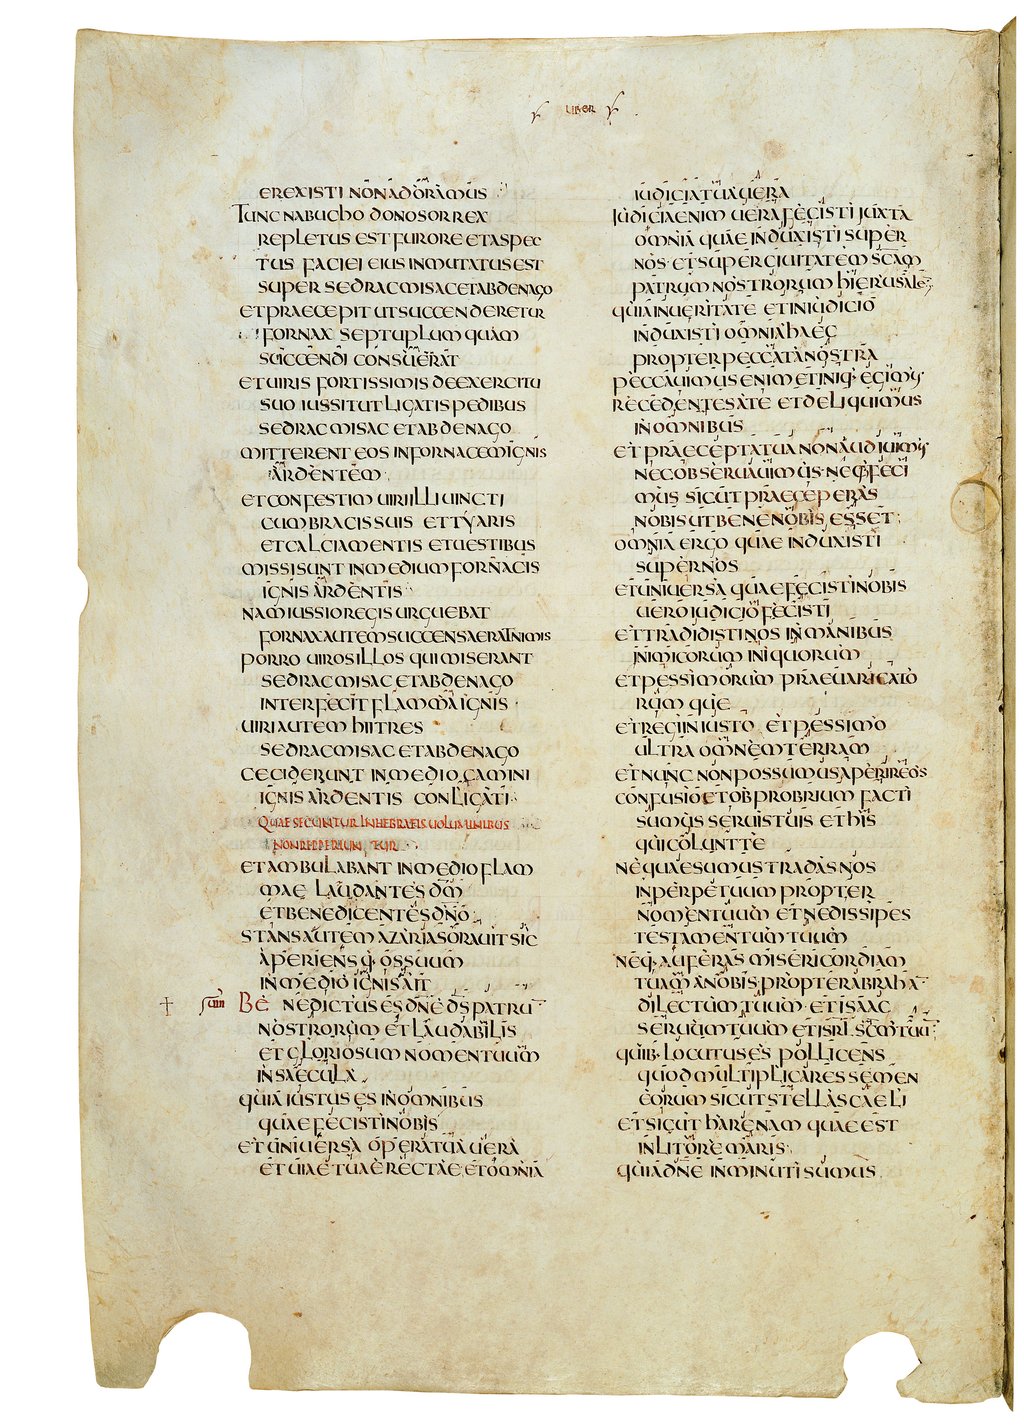 LIBER
EREXISTI NON ADORAMUS
TUNC NABUCHODONOSOR REX
REPLETUS EST FURORE ET ASPEC
TUS FACIEI EIUS INMUTATUS EST
SUPER SEDRAC MISAC ET ABDENAGO
ET PRAECEPIT UT SUCCENDERETUR
FORNAX SEPTUPLUM QUAM
SUCCENDI CONSUERAT
ET UIRIS FORTISSIMIS DE EXERCITU
SUO IUSSIT UT LIGATIS PEDIBUS
SEDRAC MISAC ET ABDENAGO
MITTERENT EOS IN FORNACEM IGNIS
ARDENTEM
ET CONFESTIM UIRI ILLI UINCTI
CUM BRACIS SUIS ET TYARIS
ET CALCIAMENTIS ET UESTIBUS
MISSI SUNT IN MEDIUM FORNACIS
IGNIS ARDENTIS
NAM IUSSIO REGIS URGUEBAT
FORNAX AUTEM SUCCENSA ERAT NIMIS
PORRO UIROS ILLOS QUI MISERANT
SEDRAC MISAC ET ABDENAGO
INTERFECIT FLAMMA IGNIS
UIRI AUTEM HII TRES
SEDRAC MISAC ET ABDENAGO
CECIDERUNT IN MEDIO CAMINI
IGNIS ARDENTIS CONLIGATI
QUAE SECUNTUR IN HEBRAEIS UOLUMINIBUS
NON REPPERIUNTUR
ET AMBULABANT IN MEDIO FLAM
MAE LAUDANTES DM
ET BENEDICENTES DNO
STANS AUTEM AZARIAS ORAUIT SIC
APERIENS Q· OS SUUM
IN MEDIO IGNIS AIT
BENEDICTUS ES DNE DS PATRU
NOSTRORUM ET LAUDABILIS
ET GLORIOSUM NOMEN TUUM
IN SAECULA
QUIA IUSTUS ES IN OMNIBUS
QUAE FECISTI NOBIS
ET UNIUERSA OPERA TUA UERA
ET UIAE TUAE RECTAE ET OMNIA
IUDICIA TUA UERA
IUDICIA ENIM UERA FECISTI IUXTA
OMNIA QUAE INDUXISTI SUPER
NOS ET SUPER CIUITATEM SCAM
PATRUM NOSTRORUM HIERUSALE
QUIA IN UERITATE ET IN IUDICIO
INDUXISTI OMNIA HAEC
PROPTER PECCATA NOSTRA
PECCAUIMUS ENIM ET INIQ· EGIM·
RECEDENTES A TE ET DELIQUIMUS
IN OMNIBUS
ET PRAECEPTA TUA NON AUDIUIM·
NEC OBSERUAUIMUS NEQ· FECI
MUS SICUT PRAECEPERAS
NOBIS UT BENE NOBIS ESSET
OMNIA ERGO QUAE INDUXISTI
SUPER NOS
ET UNIUERSA QUAE FECISTI NOBIS
UERO IUDICIO FECISTI
ET TRADIDISTI NOS IN MANIBUS
INIMICORUM INIQUORUM
ET PESSIMORUM PRAEUARICATO
RUMQUE
ET REGI INIUSTO ET PESSIMO
ULTRA OMNEM TERRAM
ET NUNC NON POSSUMUS APERIRE OS
CONFUSIO ET OBPROBRIUM FACTI
SUMUS SERUIS TUIS ET HIS
QUI COLUNT TE
NE QUAESUMUS TRADAS NOS
IN PERPETUUM PROPTER
NOMEN TUUM ET NE DISSIPES
TESTAMENTUM TUUM
NEQ· AUFERAS MISERICORDIAM
TUAM A NOBIS PROPTER ABRAHA
DILECTUM TUUM ET ISAAC
SERUUM TUUM ET ISRL SCM TUU
QUIB· LOCUTUS ES POLLICENS
QUOD MULTIPLICARES SEMEN
EORUM SICUT STELLAS CAELI
ET SICUT HARENAM QUAE EST
IN LITORE MARIS
QUIA DNE INMINUTI SUMUS